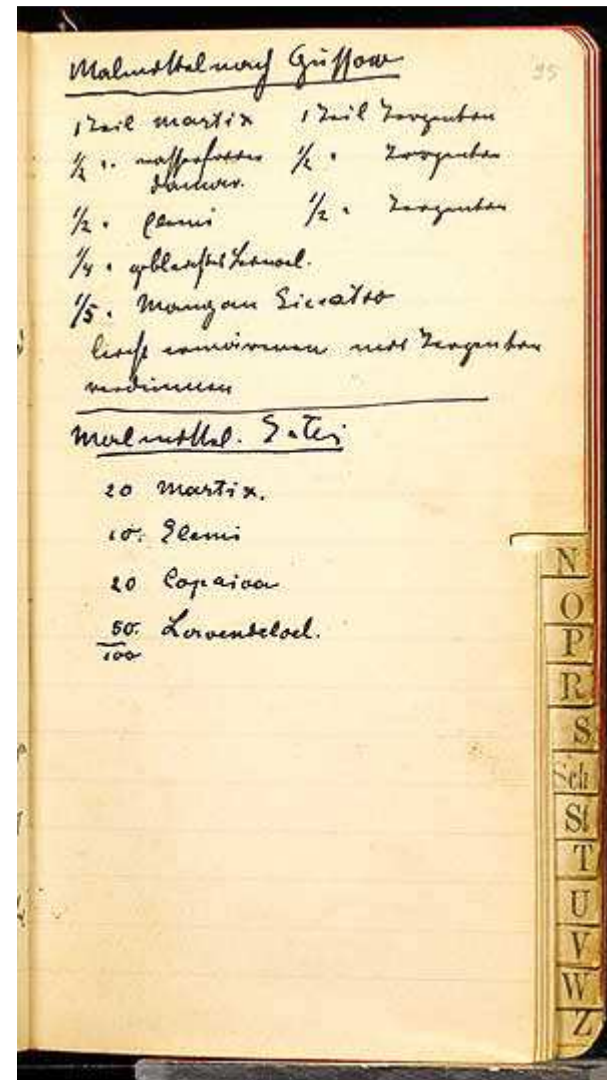 Malmittel nach Gussow
95
1 Teil Mastix 1 Teil Terpentin
1/2 " wasserfreier 1/2 " Terpentin
Damar.
1/2 " Elemi 1/2 " Terpentin
1/4 " gebleichtes Leinoel.
1/5 " Mangan Siccativ
leicht erwärmen mit Terpentin
verdünnen
Malmittel.
20 Mastix.
10. Elemi
20 Copaiva
50. Lavendeloel.
100
N
O
P
R
S
Sch
St
T
U
V
W
Z